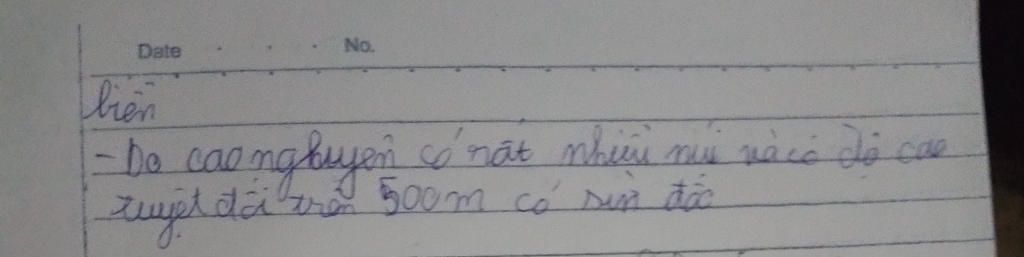 Date . . . No.
biển
- Do cao nguyên có rất nhiều núi và có độ cao
tuyệt đối trên 500m có sườn dốc